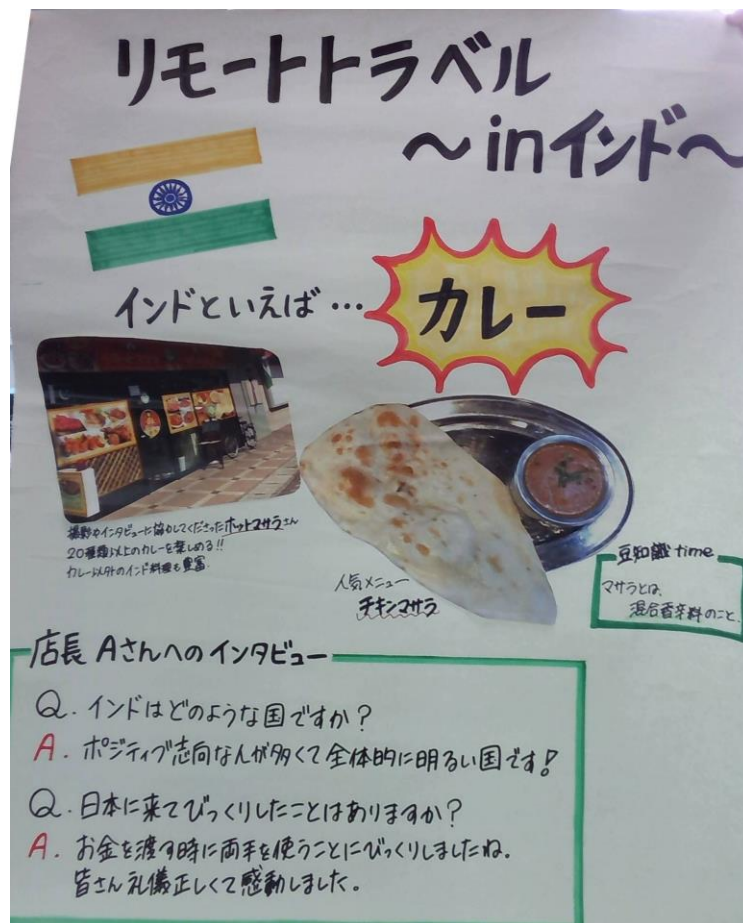 リモートトラベル
〜inインド〜
インドといえば…
カレー
撮影やインタビューに協力してくださったホットマサラさん
20種類以上のカレーを楽しめる!!
カレー以外のインド料理も豊富
人気メニュー
チキンマサラ
豆知識 time
マサラとは、
混合香辛料のこと。
店長 Aさんへのインタビュー
Q. インドはどのような国ですか?
A. ポジティブ志向な人が多くて全体的に明るい国です!
Q. 日本に来てびっくりしたことはありますか?
A. お金を渡す時に両手を使うことにびっくりしましたね。
皆さん礼儀正しくて感動しました。